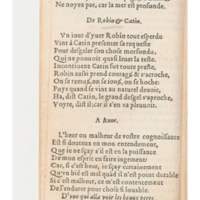 Ne noyez pas, car la mer est profonde.
De Robin & Catin.
Vn iour d'yuer Robin tout esperdu
Vint à Catin presenter sa requeste
Pour desgeler son chose morfondu,
Qui ne pouuoit quasi leuer la teste.
Incontinent Catin fut toute preste,
Robin aussi prend courage & s'accroche,
On se ioue, on se
Puis quand se vint au naturel deuoir,
Ha, dist Catin, le grand desgel s'approche,
Voyre, dist il: car il s'en va pleuuoir.
A Anne.
L'heur ou malheur de vostre cognoissance
Est si douteux en mon entendement,
Que ie ne sçay s'il est en la puissance
De mon esprit en faire iugement:
Car, si c'est heur, ie sçay certainement
Qu'vn bié est mal quád il n'est point durable
Si c'est malheur, ce m'est contentement
De l'endurer pour chose si louable.
D'vne qui